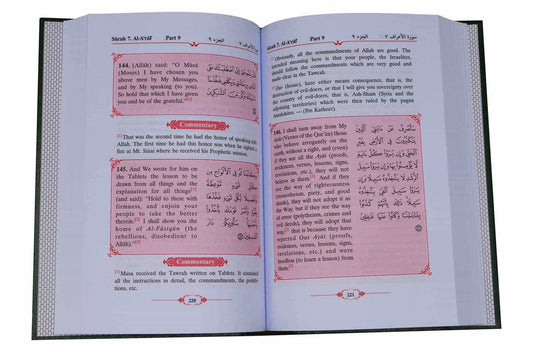 Sûrah 7. Al-A'râf Part 9 الجزء ٩ سورة الأعراف ٧
144. (Allâh) said: "O Mûsâ
(Moses) I have chosen you
above men by My Messages,
and by My speaking (to you).
So hold that which I have given
you and be of the grateful."[1]
Commentary
[1]That was the second time he had the honor of speaking with
Allah. The first time he had this honor was when he sighted a
fire at Mt. Sinai where he received his Prophetic mission.
145. And We wrote for him on
the Tablets the lesson to be
drawn from all things and the
explanation for all things[1]
(and said): "Hold to these with
firmness, and enjoin your
people to take the better
therein.[2] I shall show you the
home of Al-Fâsiqûn (the
rebellious, disobedient to
Allâh)."[3]
وَكَتَبْنَا لَهُ فِي الْأَلْوَاحِ مِن
Commentary
[1]Musa received the Tawrah written on Tablets. It contained
all the instructions in detail, the commandments, the prohibi-
tions, etc.
220
Sûrah 7. Al-A'râf Part 9 الجزء ٩ سورة الأعراف ٧
[2]Obviously, all the commandments of Allah are good. The
intended meaning here is that your people, the Israelites,
should follow the commandments which are very good and
made clear in the Tawrah.
[3]Dar (house), here either means consequence, that is, the
destruction of evil-doers, or that I will give you sovereignty over
the country of evil-doers, that is, Ash-Sham (Syria and the
adjoining territories) which were then ruled by the pagan
Amalekites. — (Ibn Katheer).
146. I shall turn away from My
Ayât (Verses of the Qur'ân) those
who behave arrogantly on the
earth, without a right, and (even)
if they see all the Ayât (proofs,
evidences, verses, lessons, signs,
revelations, etc.), they will not
believe in them.[1] And if they
see the way of righteousness
(monotheism, piety, and good
deeds), they will not adopt it as
the Way, but if they see the way
of error (polytheism, crimes and
evil deeds), they will adopt that
way,[2] that is because they have
rejected Our Ayât (proofs,
evidences, verses, lessons, signs,
revelations, etc.) and were
heedless (to learn a lesson) from
them.[3]
سَأَصْرِفُ عَنْ ءَايَٰتِيَ الَّذِينَ
يَتَكَبَّرُونَ فِي الْأَرْضِ بِغَيْرِ
221